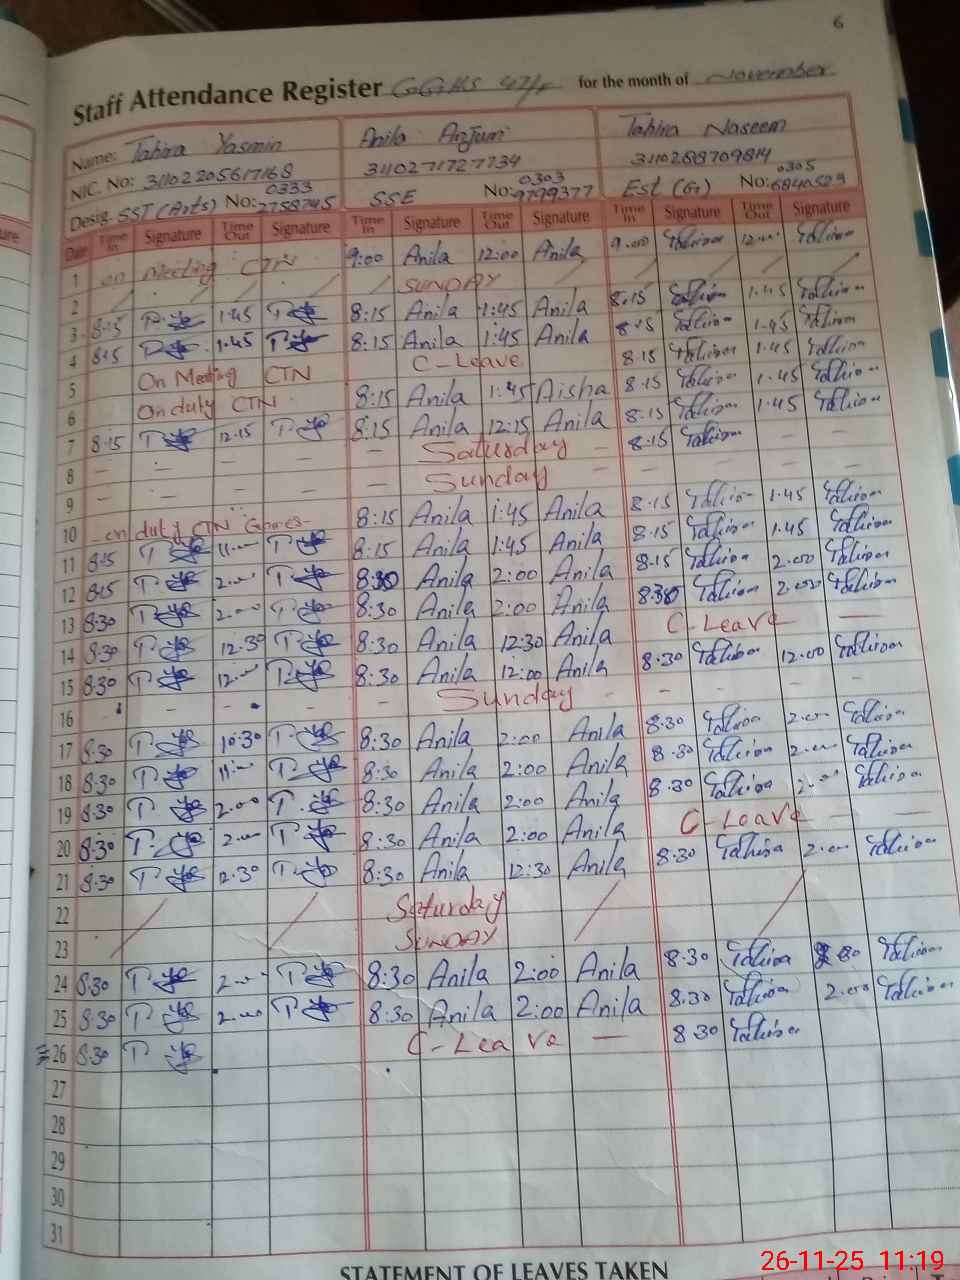 6
Staff Attendance Register GGHS 47/F for the month of November
Name: Tahira Yasmin Anila Anjum Tahira Naseem
NIC. No: 31102205617168 3110271727734 3110268709814
Desig. SST (Arts) No: 0333 2758745 SSE No: 0303 9799377 Est (G) No: 0305 6840529
Date Time In Signature Time Out Signature Time In Signature Time Out Signature Time In Signature Time Out Signature
1 on meeting CTN 9:00 Anila 12:00 Anila 9.00 Tahira 12.00 Tahira
2 SUNDAY
3 8:15 1.45 8:15 Anila 1:45 Anila 8.15 Tahira 1.45 Tahira
4 8:15 1.45 8:15 Anila 1:45 Anila 8.15 Tahira 1.45 Tahira
5 On Meeting CTN C-Leave 8.15 Tahira 1.45 Tahira
6 On duty CTN 8:15 Anila 1:45 Aisha 8.15 Tahira 1.45 Tahira
7 8.15 12.15 8:15 Anila 12:15 Anila 8.15 Tahira 1.45 Tahira
8 – – – – – Saturday – 8.15 Tahira – –
9 – – – – – Sunday – – – – –
10 on duty CTN Games 8:15 Anila 1:45 Anila 8.15 Tahira 1.45 Tahira
11 8:15 11.00 8:15 Anila 1:45 Anila 8.15 Tahira 1.45 Tahira
12 8:15 2.00 8:30 Anila 2:00 Anila 8.15 Tahira 2.00 Tahira
13 8.30 2.00 8:30 Anila 2:00 Anila 8:30 Tahira 2.00 Tahira
14 8.30 12.30 8:30 Anila 12:30 Anila C-Leave —
15 8.30 12.00 8:30 Anila 12:00 Anila 8.30 Tahira 12.00 Tahira
16 – – – Sunday – – – –
17 8.30 10.30 8:30 Anila 2:00 Anila 8.30 Tahira 2.00 Tahira
18 8.30 11.00 8:30 Anila 2:00 Anila 8.30 Tahira 2.00 Tahira
19 8.30 2.00 8:30 Anila 2:00 Anila 8.30 Tahira 2.00 Tahira
20 8.30 2.00 8:30 Anila 2:00 Anila C-Leave — —
21 8.30 12.30 8:30 Anila 12:30 Anila 8.30 Tahira 2.00 Tahira
22 Saturday
23 SUNDAY
24 8.30 2.00 8:30 Anila 2:00 Anila 8.30 Tahira Tahira
25 8.30 2.00 8:30 Anila 2:00 Anila 8.30 Tahira 2.00 Tahira
26 8.30 C-Leave — 8.30 Tahira
27
28
29
30
31
STATEMENT OF LEAVES TAKEN
26-11-25 11:19